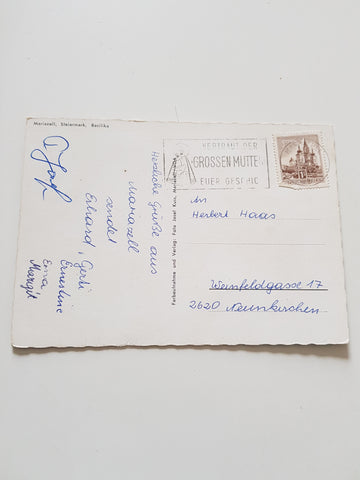 Mariazell, Steiermark, Basilika
Herzliche Grüße aus
Mariazell
sendet
Erhard, Gerti
Ernestine
Erna
Margit
VERTRAUT DER
GROSSEN MUTTER
EUER GESCHICK
An
Herbert Haas
Weinfeldgasse 17
2620 Neunkirchen
Farbaufnahme und Verlag: Foto Josef Kuss, Mariazell